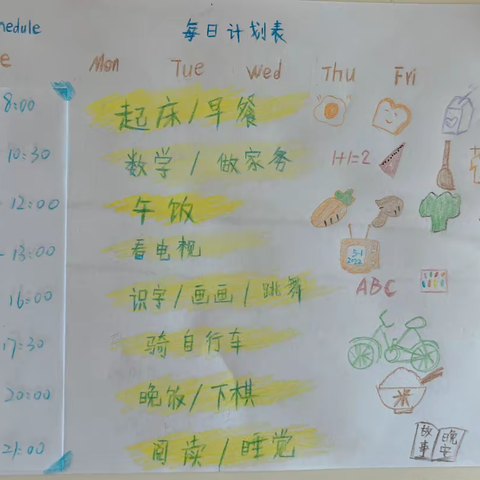 hedule 每日计划表
e Mon Tue Wed Thu Fri
8:00 起床/早餐
10:30 数学/做家务 1+1=2
12:00 午饭
13:00 看电视
16:00 识字/画画/跳舞 ABC
17:30 骑自行车
20:00 晚饭/下棋 米
21:00 阅读/睡觉 故事 晚安